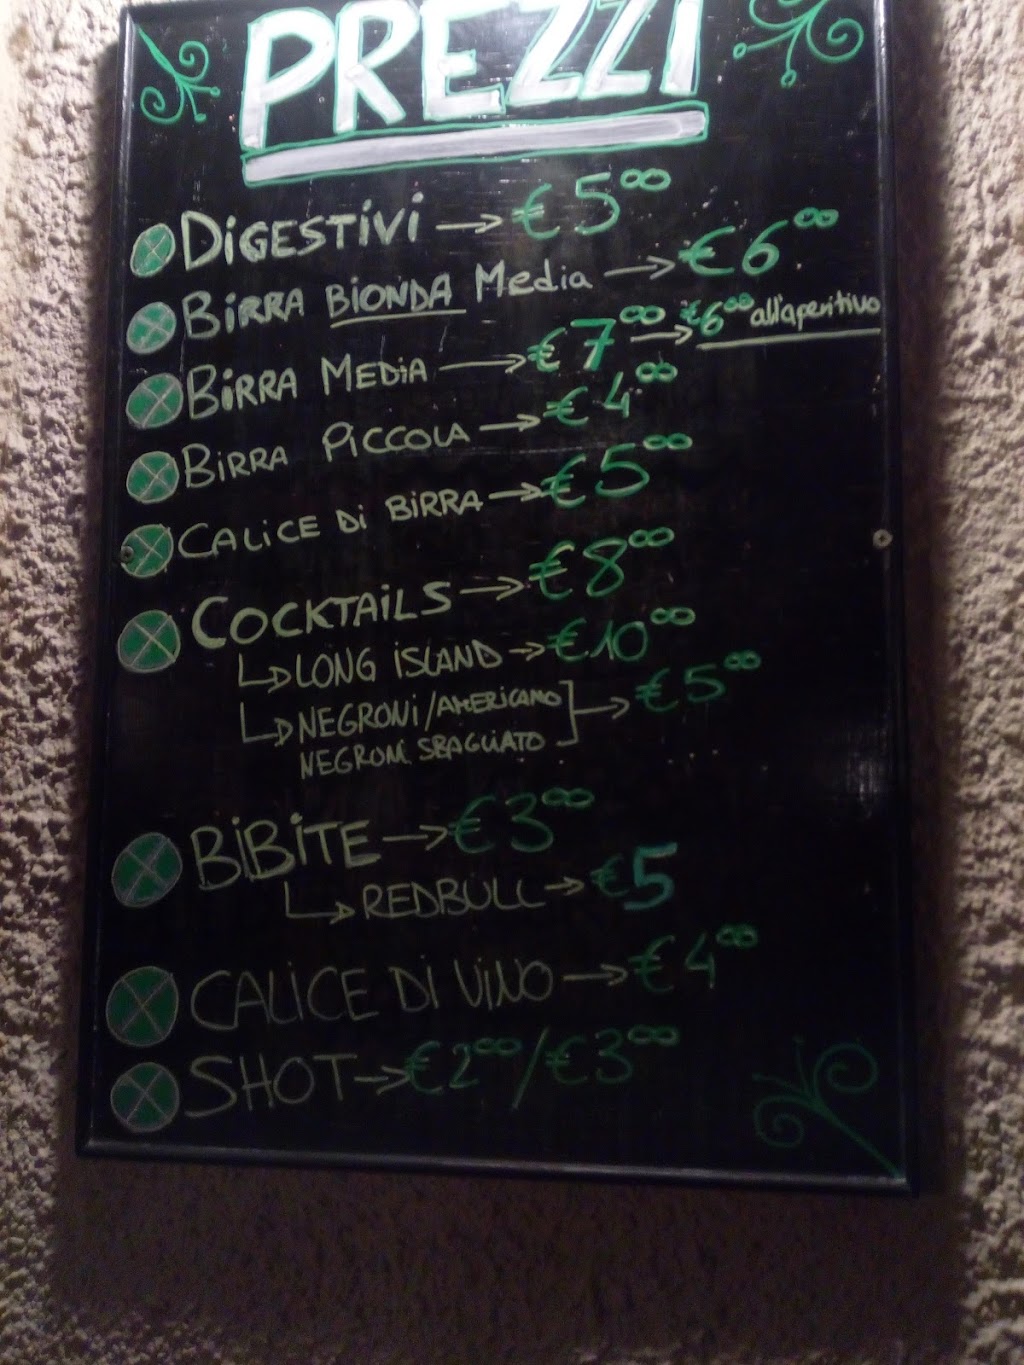 PREZZI
DiGESTiVi → €5⁰⁰
BiRRA BIONDA Media → €6⁰⁰
BiRRA MEDiA → €7⁰⁰ → €6⁰⁰ all'aperitivo
BiRRA PiCCOLA → €4⁰⁰
CALiCE Di BiRRA → €5⁰⁰
COCKTAiLS → €8⁰⁰
LONG iSLAND → €10⁰⁰
NEGRONi/AMERICANO → €5⁰⁰
NEGRONi SBAGLIATO
BiBiTE → €3⁰⁰
REDBULL → €5
CALiCE Di ViNO → €4⁰⁰
SHOT → €2⁰⁰/€3⁰⁰